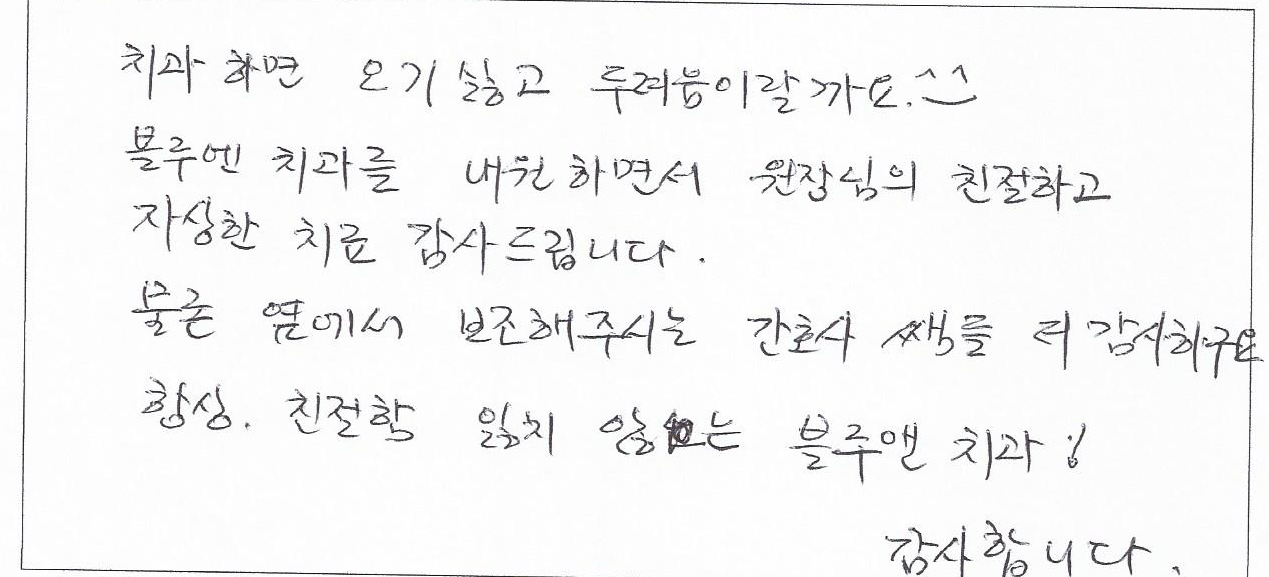 치과 하면 오기 싫고 두려움이랄까요.^^
블루엔 치과를 내원하면서 원장님의 친절하고
자상한 치료 감사드립니다.
물론 옆에서 보조해주시는 간호사 쌤들 더 감사하구요
항상. 친절함 잃치 않는 블루앤 치과!
감사합니다.